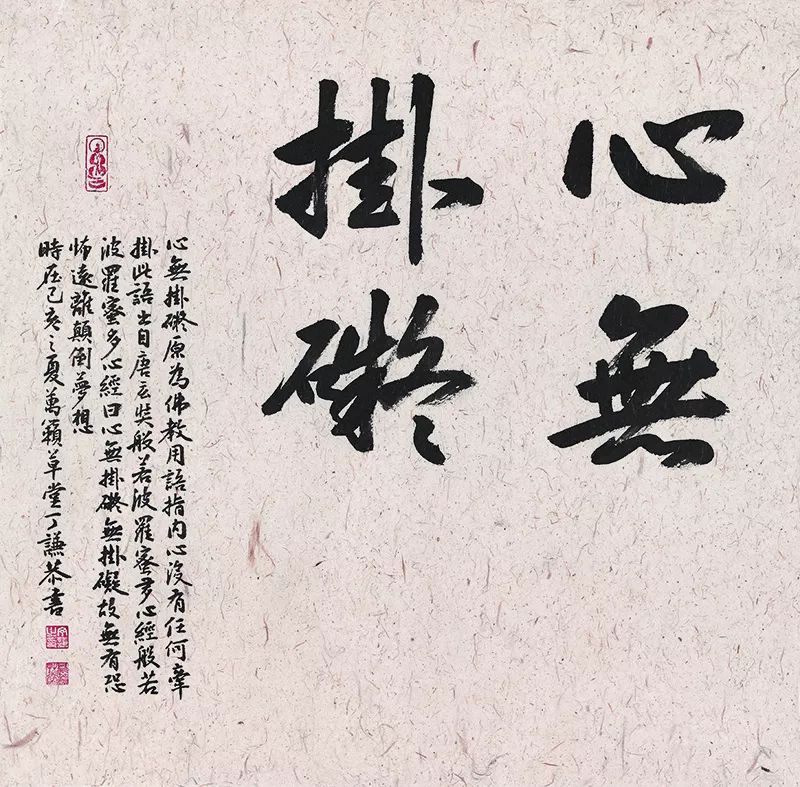 心無
掛礙
心無掛礙原為佛教用語指内心沒有任何牽
掛此語出自唐玄奘般若波羅蜜多心經般若
波羅蜜多心經曰心無掛礙無掛礙故無有恐
怖遠離顛倒夢想
時在己亥之夏萬籟草堂丁謙恭書